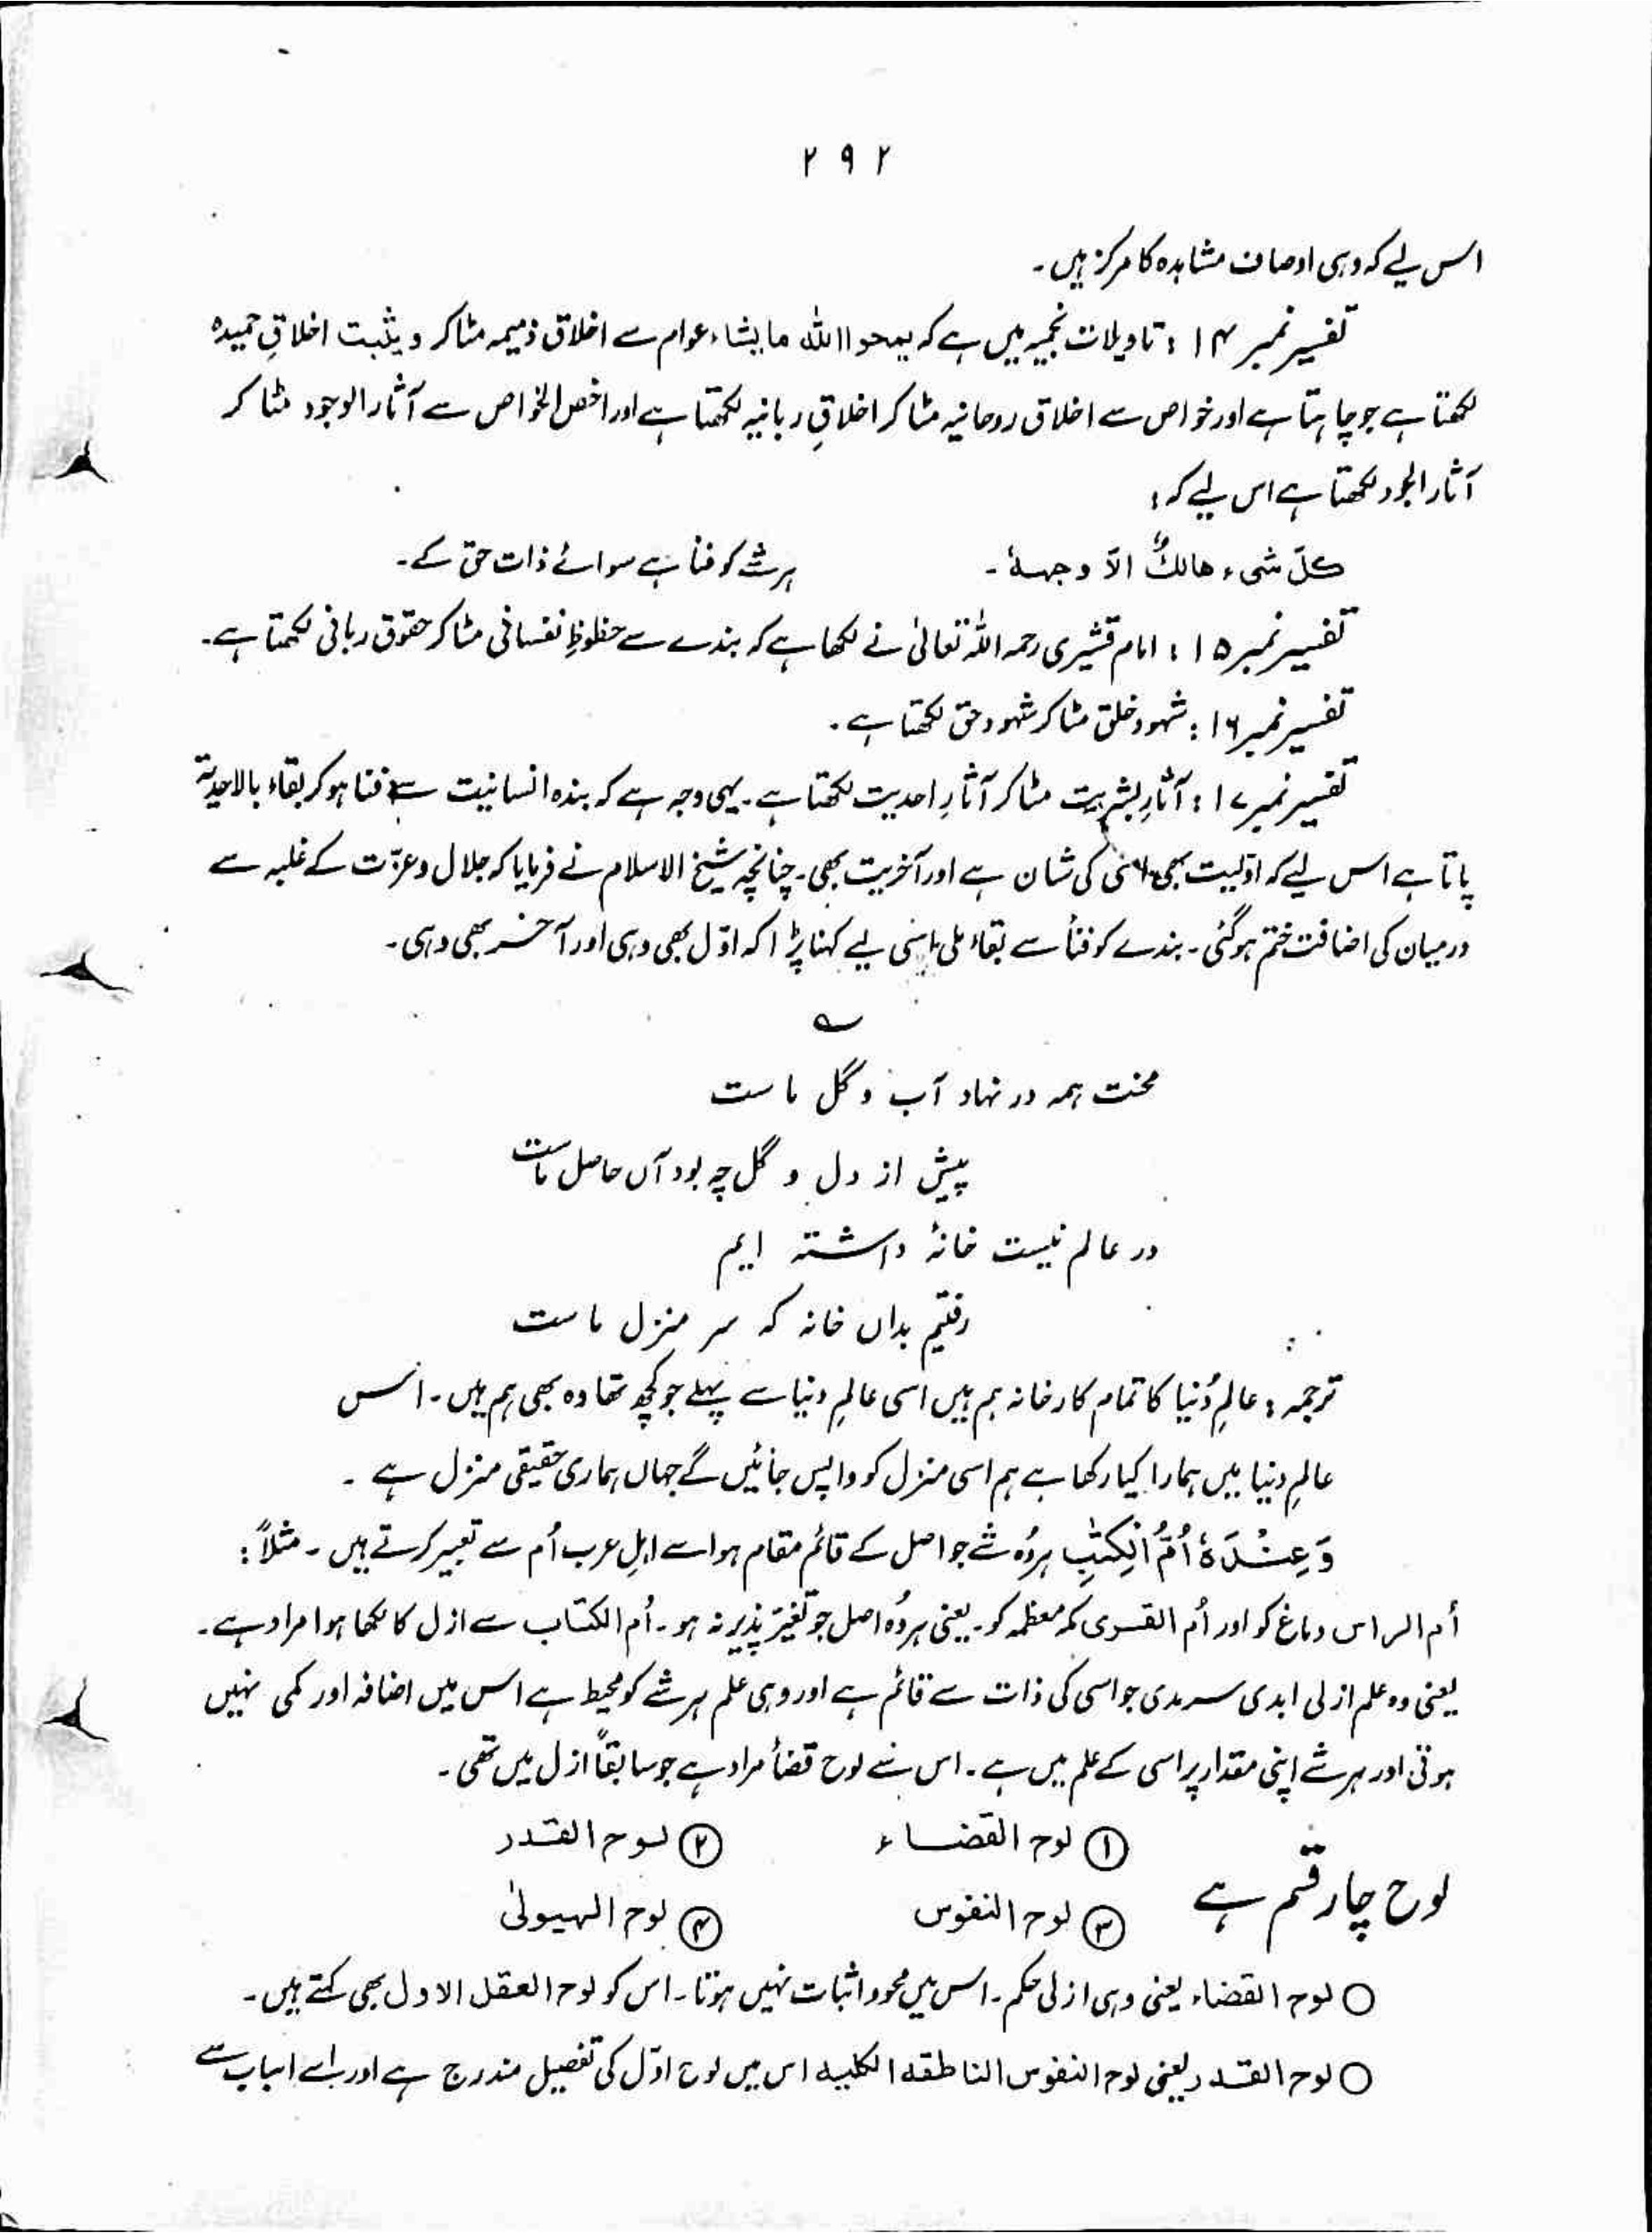 ۲۹۲
اس لیے کہ وہی اوصاف مشاہدہ کا مرکز ہیں۔
تفسیر نمبر ۱۴ : تاویلات نجمیہ میں ہے کہ یمحوا اللہ ما یشاء عوام سے اخلاق ذمیمہ مٹا کر ویثبت اخلاقِ حمیدہ
لکھتا ہے جو چاہتا ہے اور خواص سے اخلاق روحانیہ مٹا کر اخلاقِ ربانیہ لکھتا ہے اور اخص الخواص سے آثار الوجود مٹا کر
آثار الجود لکھتا ہے اس لیے کہ :
کلّ شیء ھالکٌ الاّ وجھہٗ۔ ہر شے کو فنا ہے سوائے ذات حق کے۔
تفسیر نمبر ۱۵ : امام قشیری رحمہ اللہ تعالیٰ نے لکھا ہے کہ بندے سے حظوظِ نفسانی مٹا کر حقوق ربانی لکھتا ہے۔
تفسیر نمبر ۱۶ : شہود خلق مٹا کر شہود حق لکھتا ہے۔
تفسیر نمبر ۱۷ : آثارِ بشریت مٹا کر آثارِ احدیت لکھتا ہے۔ یہی وجہ ہے کہ بندہ انسانیت سے فنا ہو کر بقاء بالاحدیۃ
پاتا ہے اس لیے کہ اوّلیت بھی اسی کی شان ہے اور آخریت بھی۔ چنانچہ شیخ الاسلام نے فرمایا کہ جلال وعزّت کے غلبہ سے
درمیان کی اضافت ختم ہوگئی۔ بندے کو فنأ سے بقاء ملی اسی لیے کہنا پڑا کہ اوّل بھی وہی اور آخر بھی وہی۔
؎
محنت ہمہ در نہاد آب و گل ماست
پیش از دل و گل چہ بود آں حاصل ماست
در عالم نیست خانۂ داشتہ ایم
رفتیم بداں خانہ کہ سر منزل ماست
ترجمہ : عالمِ دُنیا کا تمام کارخانہ ہم ہیں اسی عالمِ دنیا سے پہلے جو کچھ تھا وہ بھی ہم ہیں۔ اس
عالمِ دنیا میں ہمارا کیا رکھا ہے ہم اسی منزل کو واپس جائیں گے جہاں ہماری حقیقی منزل ہے۔
وَعِنْدَہٗ اُمُّ الْکِتٰبِ ہر وُہ شے جو اصل کے قائم مقام ہو اسے اہلِ عرب اُم سے تعبیر کرتے ہیں۔ مثلاً :
اُم الراس دماغ کو اور اُم القری مکہ معظمہ کو۔ یعنی ہر وُہ اصل جو تغیّر پذیر نہ ہو۔ اُم الکتاب سے ازل کا لکھا ہوا مراد ہے۔
یعنی وہ علم ازلی ابدی سرمدی جو اسی کی ذات سے قائم ہے اور وہی علم ہر شے کو محیط ہے اس میں اضافہ اور کمی نہیں
ہوتی اور ہر شے اپنی مقدار پر اسی کے علم میں ہے۔ اس سے لوح قضأ مراد ہے جو سابقاً ازل میں تھی۔
لوح چار قسم ہے
① لوح القضاء ② لوح القدر
③ لوح النفوس ④ لوح الہیولیٰ
○ لوح القضاء یعنی وہی ازلی حکم۔ اس میں محو و اثبات نہیں ہوتا۔ اس کو لوح العقل الاول بھی کہتے ہیں۔
○ لوح القدر یعنی لوح النفوس الناطقہ الکلیہ اس میں لوح اوّل کی تفصیل مندرج ہے اور اسے اسباب سے